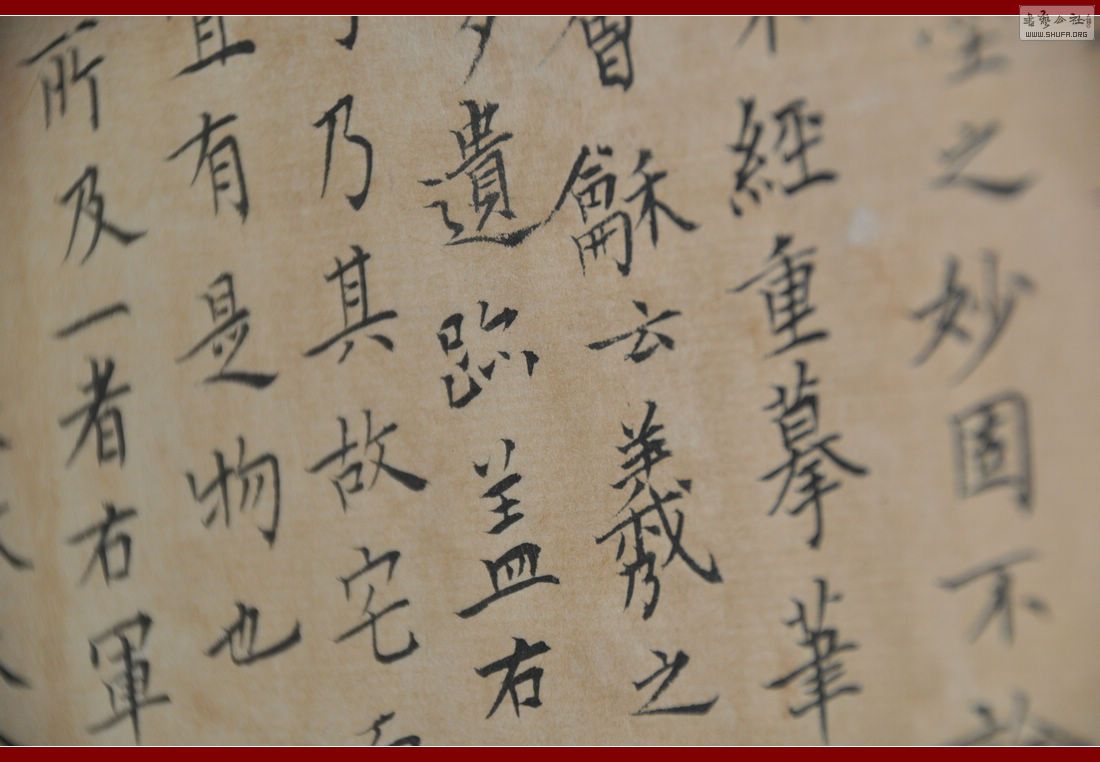 之妙固不
經重摹筆
曾龢云羲之
遺跡蓋右
乃其故宅
有是物也
所及一者右軍
書藝公社
WWW.SHUFA.ORG